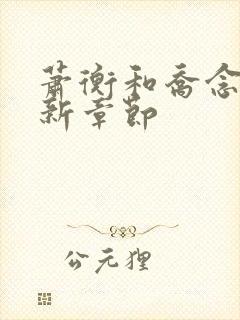 萧衡和乔念
新章节
公元狸